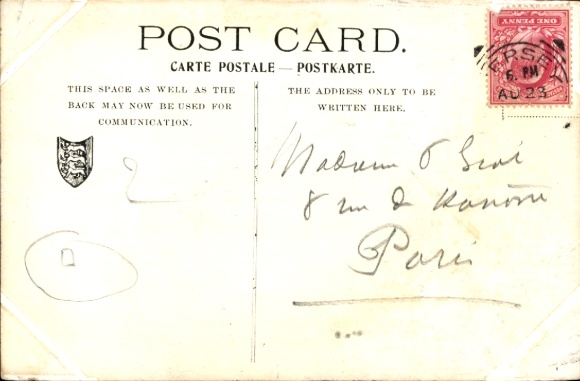 POST CARD.
CARTE POSTALE — POSTKARTE.
THIS SPACE AS WELL AS THE
BACK MAY NOW BE USED FOR
COMMUNICATION.
THE ADDRESS ONLY TO BE
WRITTEN HERE.
ONE PENNY
ERSEY
6. PM
AU 23
2
Madame
8 rue de
Paris